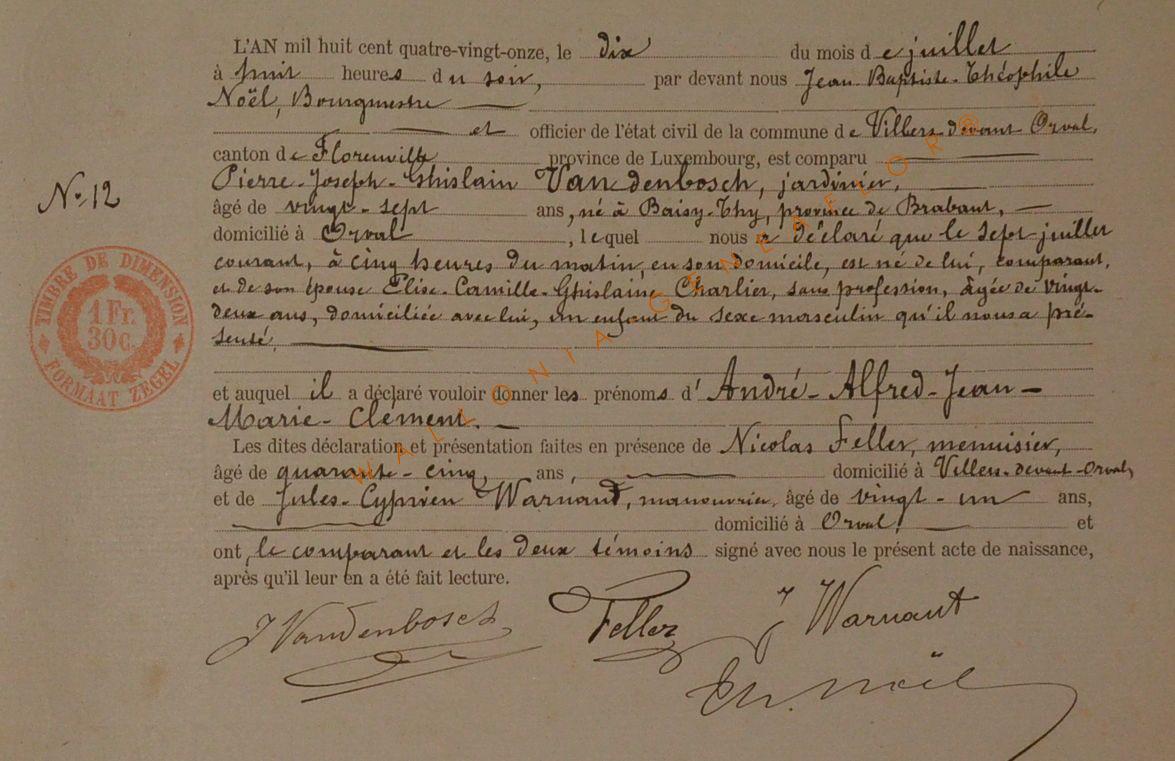 L'AN mil huit cent quatre-vingt-onze, le dix du mois de juillet
à huit heures du soir, par devant nous Jean Baptiste-Théophile
Noël, Bourgmestre
et officier de l'état civil de la commune de Villers devant Orval,
canton de Florenville province de Luxembourg, est comparu
Pierre-Joseph-Ghislain Vandenbosch, jardinier,
N° 12
âgé de vingt-sept ans, né à Baisy-Thy, province de Brabant,
domicilié à Orval, lequel nous a déclaré que le sept juillet
courant, à cinq heures du matin, en son domicile, est né de lui, comparant,
et de son épouse Elise-Camille-Ghislaine Charlier, sans profession, âgée de vingt-
deux ans, domiciliée avec lui, un enfant du sexe masculin qu'il nous a pré-
senté,
TIMBRE DE DIMENSION
1 Fr.
30 C.
FORMAAT ZEGEL
et auquel il a déclaré vouloir donner les prénoms d'André-Alfred-Jean-
Marie-Clément.
Les dites déclaration et présentation faites en présence de Nicolas Feller, menuisier,
âgé de quarante-cinq, ans, domicilié à Villers-devant-Orval,
et de Jules-Cyprien Warnant, manouvrier, âgé de vingt-un ans,
domicilié à Orval, et
ont, le comparant et les deux témoins signé avec nous le présent acte de naissance,
après qu'il leur en a été fait lecture.
J Vandenbosch Feller J Warnant
Th. Noël
WALLONIA GENEAFLOR@